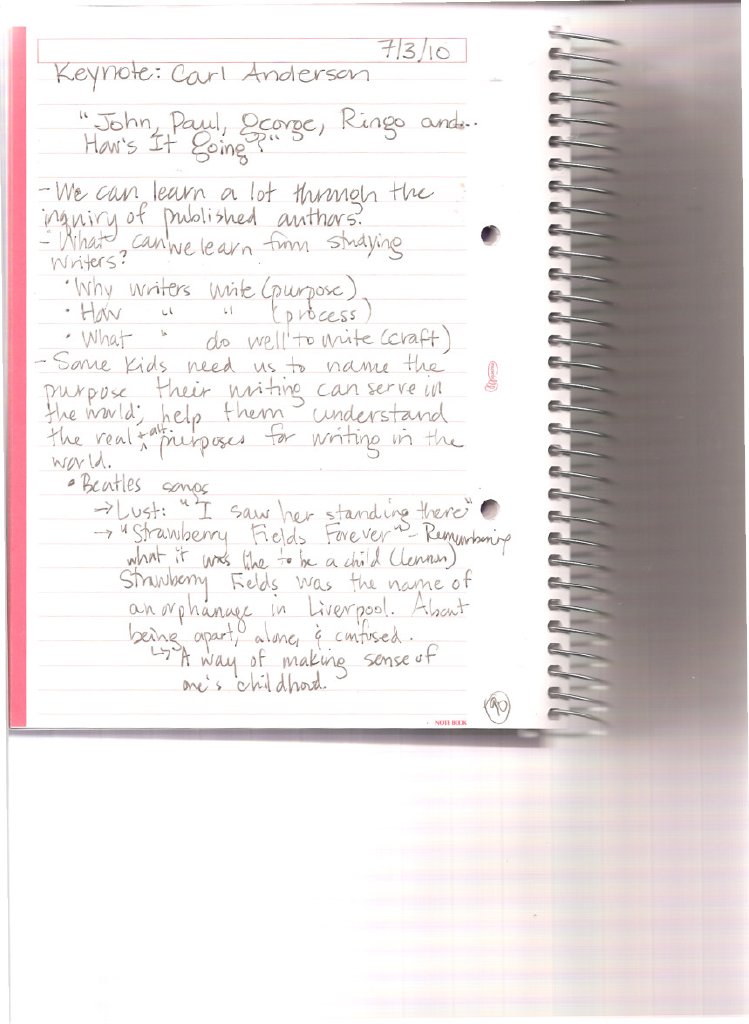 7/3/10
Keynote: Carl Anderson
"John, Paul, George, Ringo and...
How's It Going?"
- We can learn a lot through the
inquiry of published authors.
- What can we learn from studying
writers?
• Why writers write (purpose)
• How " " (process)
• What " do well to write (craft)
- Some kids need us to name the
purpose their writing can serve in
the world; help them understand
the real + alt. purposes for writing in the
world.
• Beatles songs
→ Lust: "I saw her standing there"
→ "Strawberry Fields Forever" - Remembering
what it was like to be a child (Lennon)
Strawberry Fields was the name of
an orphanage in Liverpool. About
being apart, alone, & confused.
↳ A way of making sense of
one's childhood.
NOTEBOOK
90